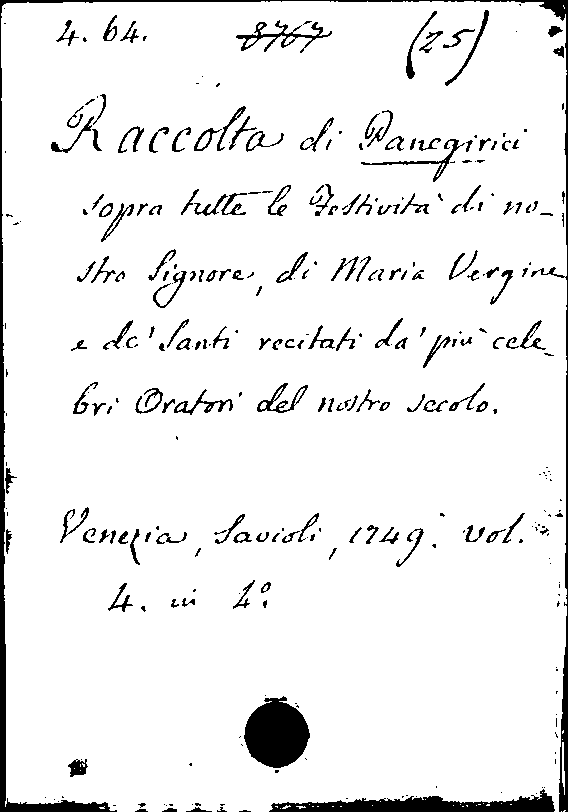 4. 64. 8767 (25)
Raccolta di Panegirici
sopra tutte le Festività di no-
stro Signore, di Maria Vergine
e de' Santi recitati da' più cele-
bri Oratori del nostro secolo.
Venezia, Savioli, 1749. vol.
4. in 4º.